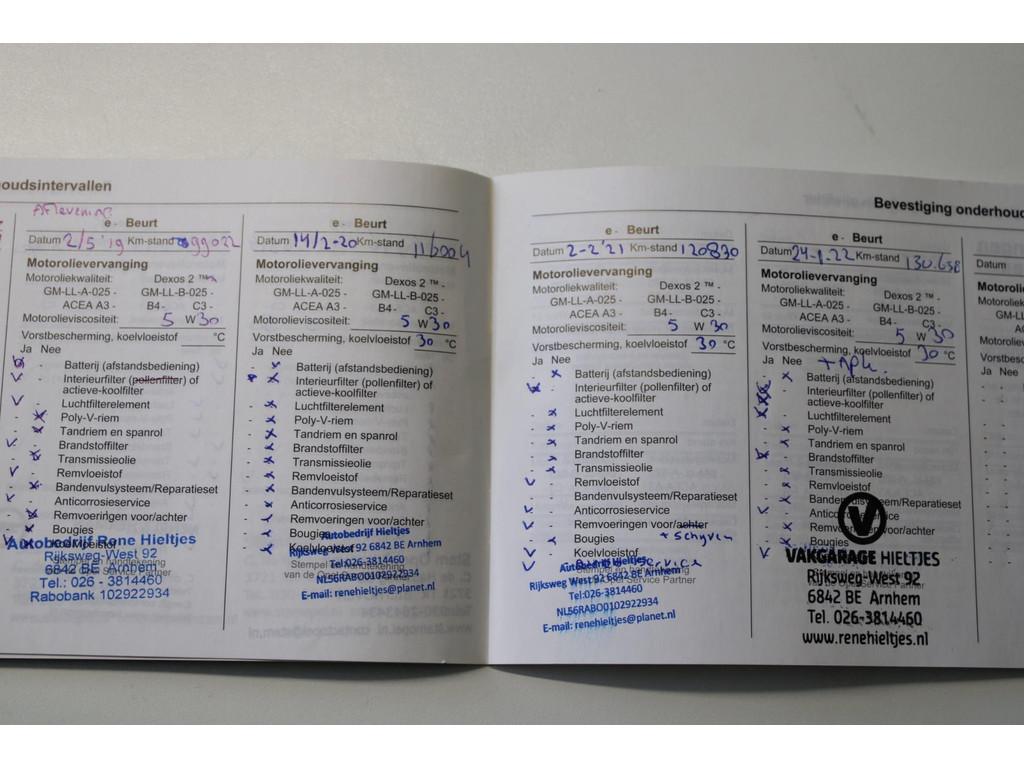 oudsintervallen
Aflevering
e - Beurt
Datum 2/5 '19 Km-stand 99022
Motorolievervanging
Motoroliekwaliteit: Dexos 2 ™ -
GM-LL-A-025 - GM-LL-B-025 -
ACEA A3 - B4 - C3 -
Motorolieviscositeit: 5 W 30
Vorstbescherming, koelvloeistof °C
Ja Nee
Batterij (afstandsbediening)
Interieurfilter (pollenfilter) of
actieve-koolfilter
Luchtfilterelement
Poly-V-riem
Tandriem en spanrol
Brandstoffilter
Transmissieolie
Remvloeistof
Bandenvulsysteem/Reparatieset
Anticorrosieservice
Remvoeringen voor/achter
Bougies
Koelvloeistof
Autobedrijf Rene Hieltjes
Rijksweg-West 92
6842 BE Arnhem
Tel.: 026 - 3814460
Rabobank 102922934
e - Beurt
Datum 14/2-20 Km-stand 116004
Motorolievervanging
Motoroliekwaliteit: Dexos 2 ™ -
GM-LL-A-025 - GM-LL-B-025 -
ACEA A3 - B4 - C3 -
Motorolieviscositeit: 5 W 30
Vorstbescherming, koelvloeistof 30 °C
Ja Nee
Batterij (afstandsbediening)
Interieurfilter (pollenfilter) of
actieve-koolfilter
Luchtfilterelement
Poly-V-riem
Tandriem en spanrol
Brandstoffilter
Transmissieolie
Remvloeistof
Bandenvulsysteem/Reparatieset
Anticorrosieservice
Remvoeringen voor/achter
Bougies
Koelvloeistof
Autobedrijf Hieltjes
Rijksweg West 92 6842 BE Arnhem
Tel:026-3814460
NL56RABO0102922934
E-mail: renehieltjes@planet.nl
Bevestiging onderhoud
e - Beurt
Datum 2-2'21 Km-stand 120830
Motorolievervanging
Motoroliekwaliteit: Dexos 2 ™ -
GM-LL-A-025 - GM-LL-B-025 -
ACEA A3 - B4 - C3 -
Motorolieviscositeit: 5 W 30
Vorstbescherming, koelvloeistof 30 °C
Ja Nee
Batterij (afstandsbediening)
Interieurfilter (pollenfilter) of
actieve-koolfilter
Luchtfilterelement
Poly-V-riem
Tandriem en spanrol
Brandstoffilter
Transmissieolie
Remvloeistof
Bandenvulsysteem/Reparatieset
Anticorrosieservice
Remvoeringen voor/achter
Bougies + schyven
Koelvloeistof
service
Autobedrijf Hieltjes
Rijksweg West 92 6842 BE Arnhem
Tel:026-3814460
NL56RABO0102922934
E-mail: renehieltjes@planet.nl
e - Beurt
Datum 24-1.22 Km-stand 130.658
Motorolievervanging
Motoroliekwaliteit: Dexos 2 ™ -
GM-LL-A-025 - GM-LL-B-025 -
ACEA A3 - B4 - C3 -
Motorolieviscositeit: 5 W 30
Vorstbescherming, koelvloeistof 30 °C
Ja Nee + Apk.
Batterij (afstandsbediening)
Interieurfilter (pollenfilter) of
actieve-koolfilter
Luchtfilterelement
Poly-V-riem
Tandriem en spanrol
Brandstoffilter
Transmissieolie
Remvloeistof
Bandenvulsysteem/Reparatieset
Remvoeringen voor/achter
Bougies
V
VAKGARAGE HIELTJES
Rijksweg-West 92
6842 BE Arnhem
Tel. 026-3814460
www.renehieltjes.nl
Datum
Motorol
Motoroliek
GM-LL
Motoroliev
Vorstbesc
Ja Nee